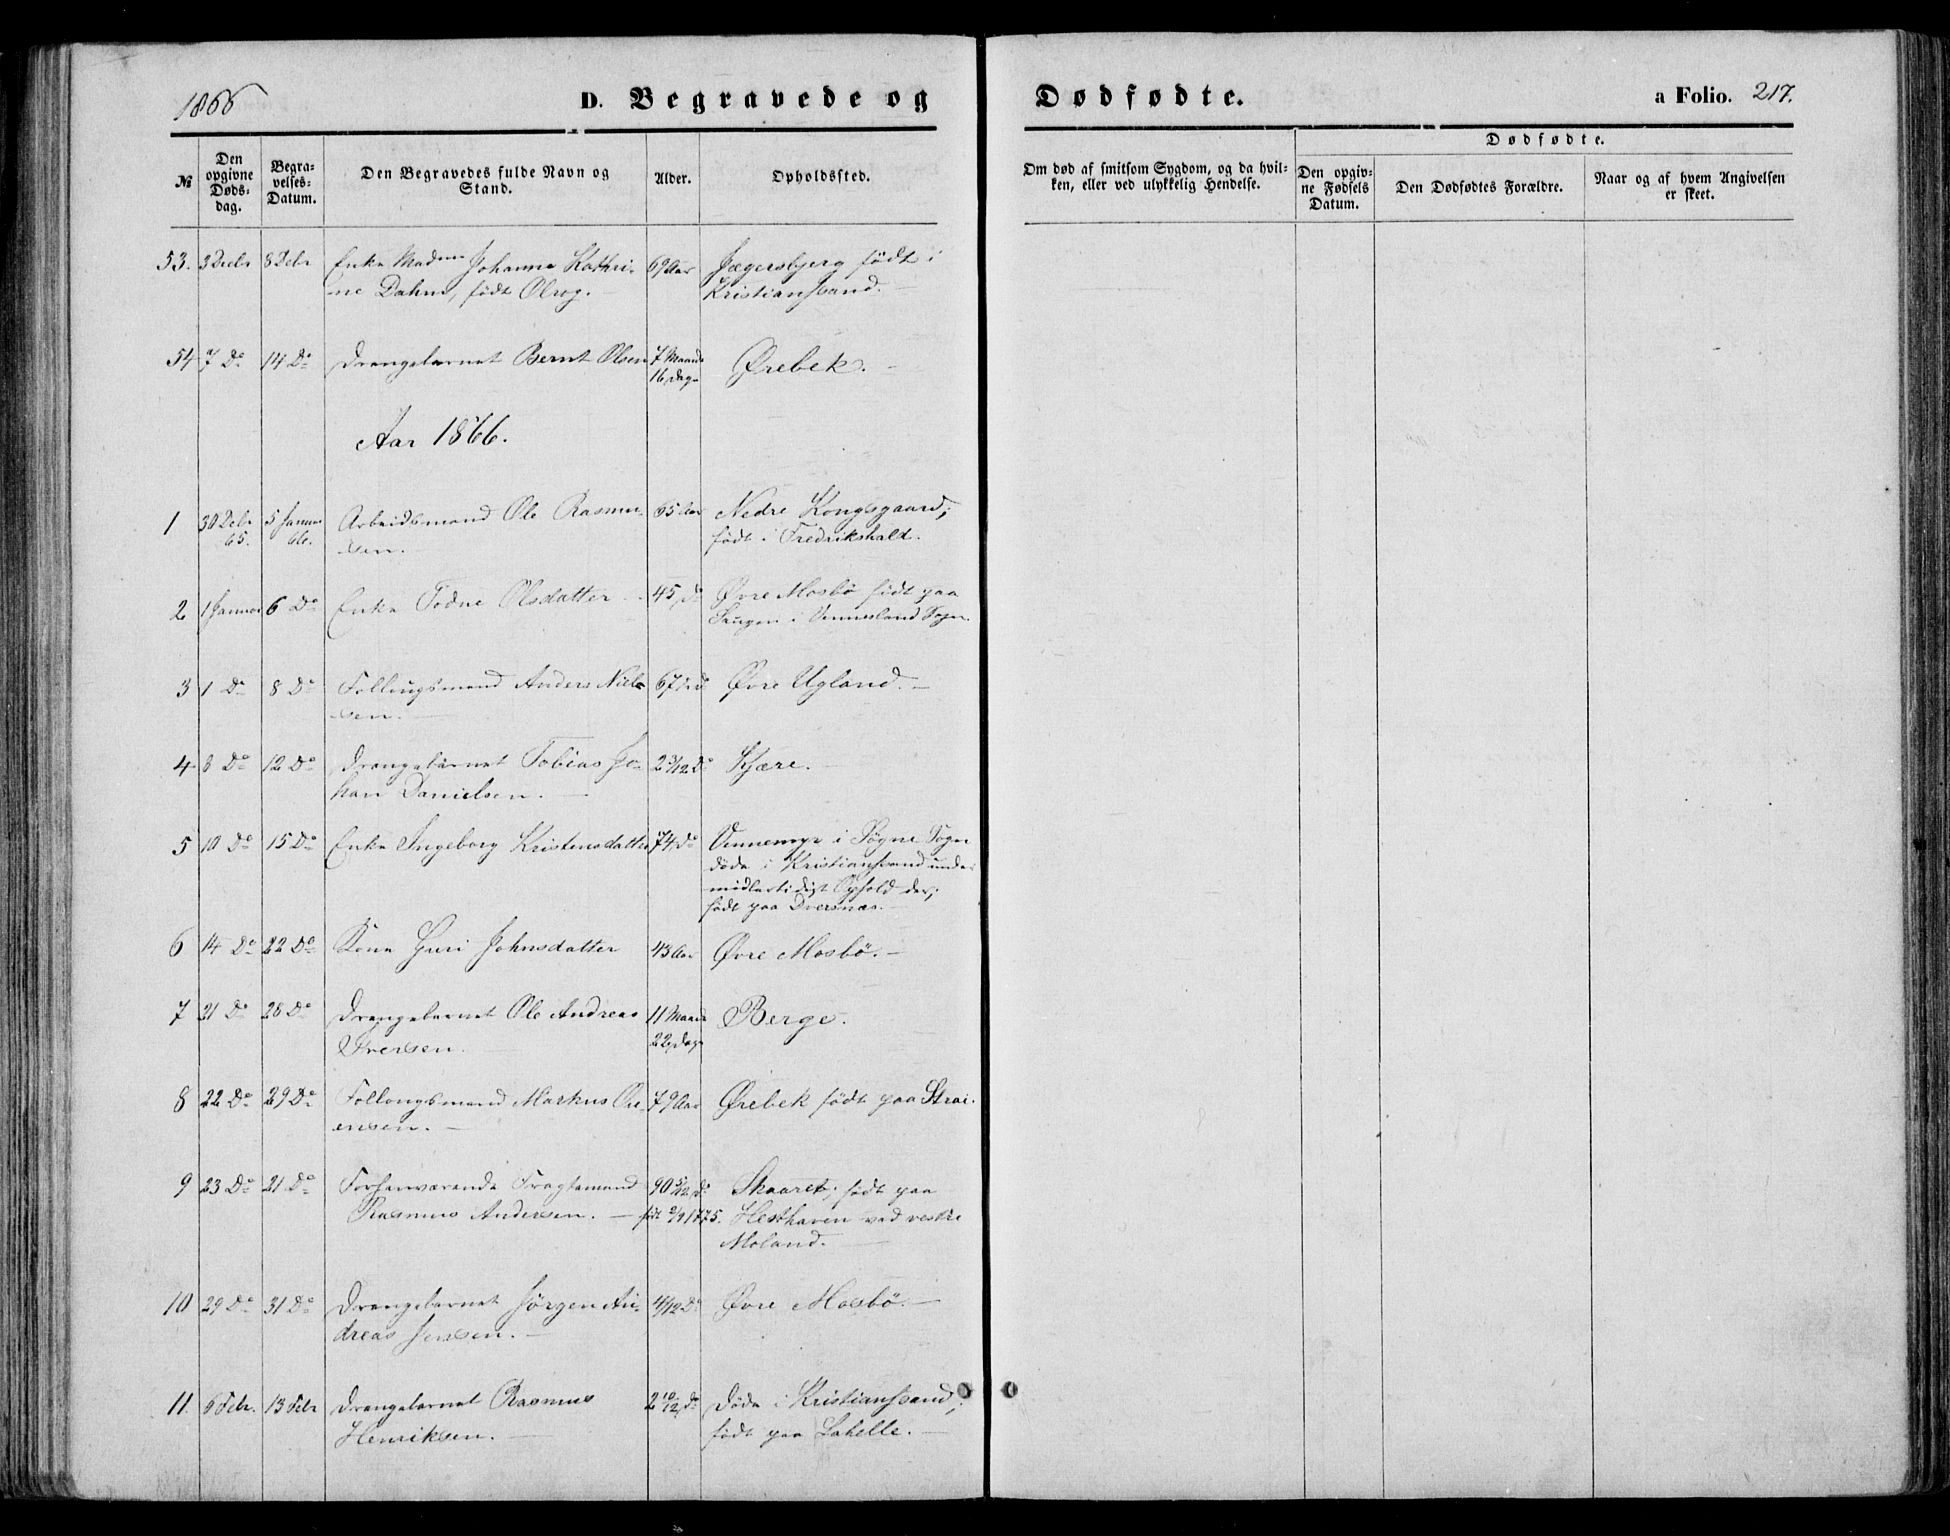 1866
D. Begravede og Dødfødte.
a Folio. 217.
№
Den opgivne Døds-dag.
Begra-velses-Datum.
Den Begravedes fulde Navn og Stand.
Alder.
Opholdssted.
Om død af smitsom Sygdom, og da hvil-ken, eller ved ulykkelig Hendelse.
Dødfødte.
Den opgiv-ne Fødsels Datum.
Den Dødfødtes Forældre.
Naar og af hvem Angivelsen er skeet.
53. 3 Decbr 8 Debr Enke Madme Johanne Kathri- 69 Aar Jægersbjerg født i
ne Dahm, født Olrog. — Kristianssand. —
54 7 Do 14 Do Drengebarnet Bernt Olsen 7 Maand Ørebek. —
16 Dage
Aar 1866.
1 30 Debr 5 Januar Arbeidsmand Ole Rasmu- 65 Aar Nedre Kongsgaard;
65. 66. sen. født i Fredrikshald.
2 1 Januar 6 Do Enke Todne Olsdatter 45 Do Øvre Mosbö født paa
i Vennesland Sogn.
3 1 Do 8 Do Follougsmand Anders Niel- 67 Do Øvre Ugland. —
sen. —
4 8 Do 12 Do Drengebarnet Tobias Jo- 2 3/12 Do Kjære.
han Danielsen. —
5 10 Do 15 Do Enke Ingeborg Kristensdatter 74 Do Vennemyr i Søgne Sogn
døde i Kristianssand under
midlertidigt Ophold der;
født paa Dversnæs. —
6 14 Do 22 Do Kone Guri Johnsdatter 43 Aar Øvre Mosbö. —
7 21 Do 28 Do Drengebarnet Ole Andreas 11 Maand Berge.
Iversen. — 22 Dage
8 22 Do 29 Do Follougsmand Markus 79 Aar Ørebek født paa Strai.
ensen. —
9 23 Do 21 Do Forhenværende Fragtemand 90 5/12 Do Skaaret; født paa
Rasmus Andersen. — født 1775. Hesthaven ved vestre
Moland. —
10 29 Do 31 Do Drengebarnet Jørgen An- 4/12 Do Øvre Mosbö. —
dreas Jensen. —
11. 6 Febr. 13 Febr Drengebarnet Rasmus 2 10/12 Do Døde i Kristianssand;
Henriksen. — født paa Lahelle. —